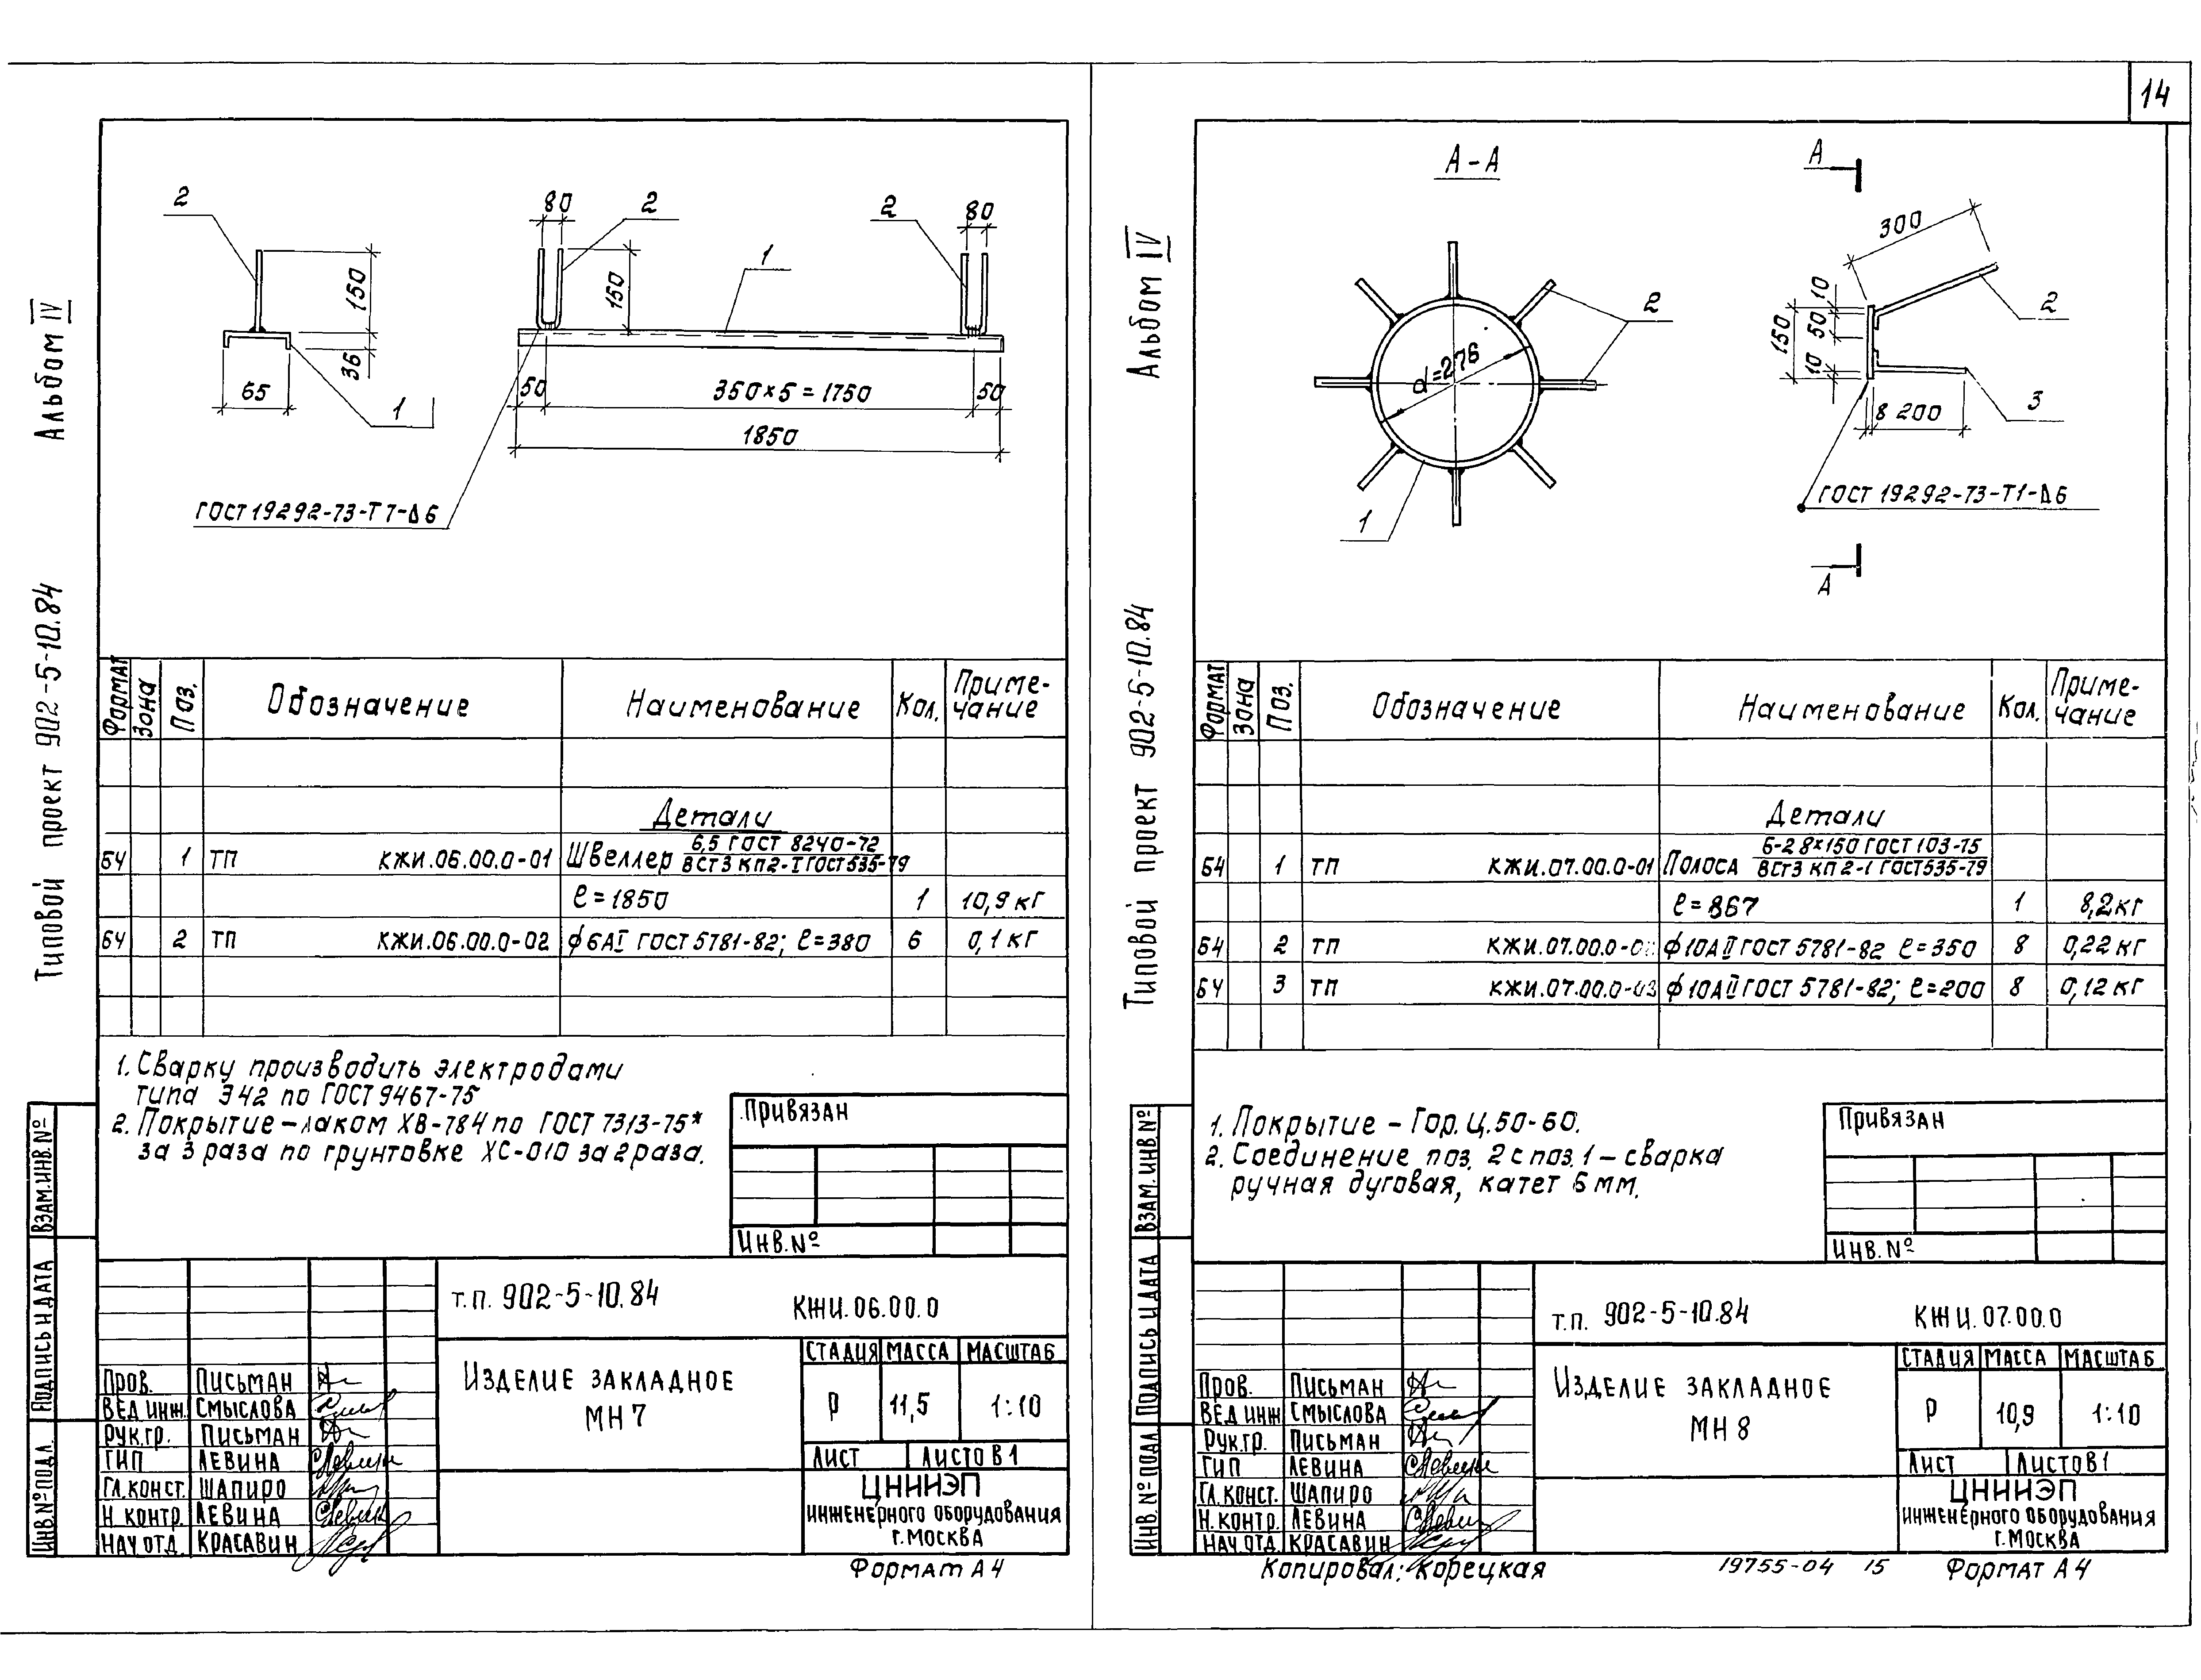 14
Альбом IV
Типовой проект 902-5-10.84
2
150
36
65
1
80
2
150
1
2
80
50
350×5=1750
50
1850
ГОСТ 19292-73-Т7-Δ6
Формат
Зона
Поз.
Обозначение
Наименование
Кол.
Приме-
чание
Детали
БЧ 1 ТП КЖИ.06.00.0-01 Швеллер 6,5 ГОСТ 8240-72
ВСт3 КП2-I ГОСТ 535-79
ℓ=1850 1 10,9 кг
БЧ 2 ТП КЖИ.06.00.0-02 ϕ6АI ГОСТ 5781-82; ℓ=380 6 0,1 кг
1. Сварку производить электродами
типа Э42 по ГОСТ 9467-75
2. Покрытие – лаком ХВ-784 по ГОСТ 7313-75*
за 3 раза по грунтовке ХС-010 за 2 раза.
Привязан
Инв.№
Взам.инв.№
Подпись и дата
Инв.№ подл.
т.п. 902-5-10.84 КЖИ.06.00.0
Изделие закладное
МН7
Стадия Масса Масштаб
Р 11,5 1:10
Лист Листов 1
ЦНИИЭП
инженерного оборудования
г.Москва
Пров. Письман
Вед.инж. Смыслова
Рук.гр. Письман
ГИП Левина
Гл.конст. Шапиро
Н.контр. Левина
Нач.отд. Красавин
Формат А4
Альбом IV
Типовой проект 902-5-10.84
А-А
2
d=276
1
А
300
10
50
150
10
2
3
8 200
ГОСТ 19292-73-Т1-Δ6
А
Формат
Зона
Поз.
Обозначение
Наименование
Кол.
Приме-
чание
Детали
БЧ 1 ТП КЖИ.07.00.0-01 Полоса 6-2 8×150 ГОСТ 103-75
ВСт3 КП2-1 ГОСТ 535-79
ℓ=867 1 8,2кг
БЧ 2 ТП ϕ10АII ГОСТ 5781-82 ℓ=350 8 0,22 кг
БЧ 3 ТП КЖИ.07.00.0-03 ϕ10АII ГОСТ 5781-82; ℓ=200 8 0,12кг
1. Покрытие – Гор.Ц.50-60.
2. Соединение поз. 2 с поз.1 – сварка
ручная дуговая, катет 6 мм.
Привязан
Инв.№
Взам.инв.№
Подпись и дата
Инв.№ подл
т.п. 902-5-10.84 КЖИ.07.00.0
Изделие закладное
МН8
Стадия Масса Масштаб
Р 10,9 1:10
Лист Листов 1
ЦНИИЭП
инженерного оборудования
г.Москва
Пров. Письман
Вед.инж Смыслова
Рук.гр. Письман
ГИП Левина
Гл.конст. Шапиро
Н.контр. Левина
Нач.отд. Красавин
Копировал: Корецкая 19755-04 15 Формат А4